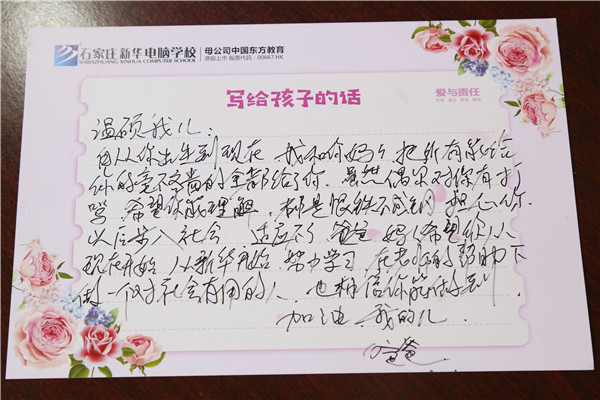 石家庄新华电脑学校
SHIJIAZHUANG XINHUA COMPUTER SCHOOL
母公司中国东方教育
港股上市 股票代码：00667.HK
写给孩子的话
爱与责任
温硕我儿：
自从你出生到现在 我和你妈妈 把所有能给
你的毫不吝啬的全部给了你 虽然偶尔对你有打
骂 希望你能理解 都是恨铁不成钢 担心你
以后步入社会 适应不了 爸爸 妈妈希望你从
现在开始 从新华开始 努力学习 在老师的帮助下
做一个对社会有用的人 也相信你能做到
加油 我的儿
爸爸